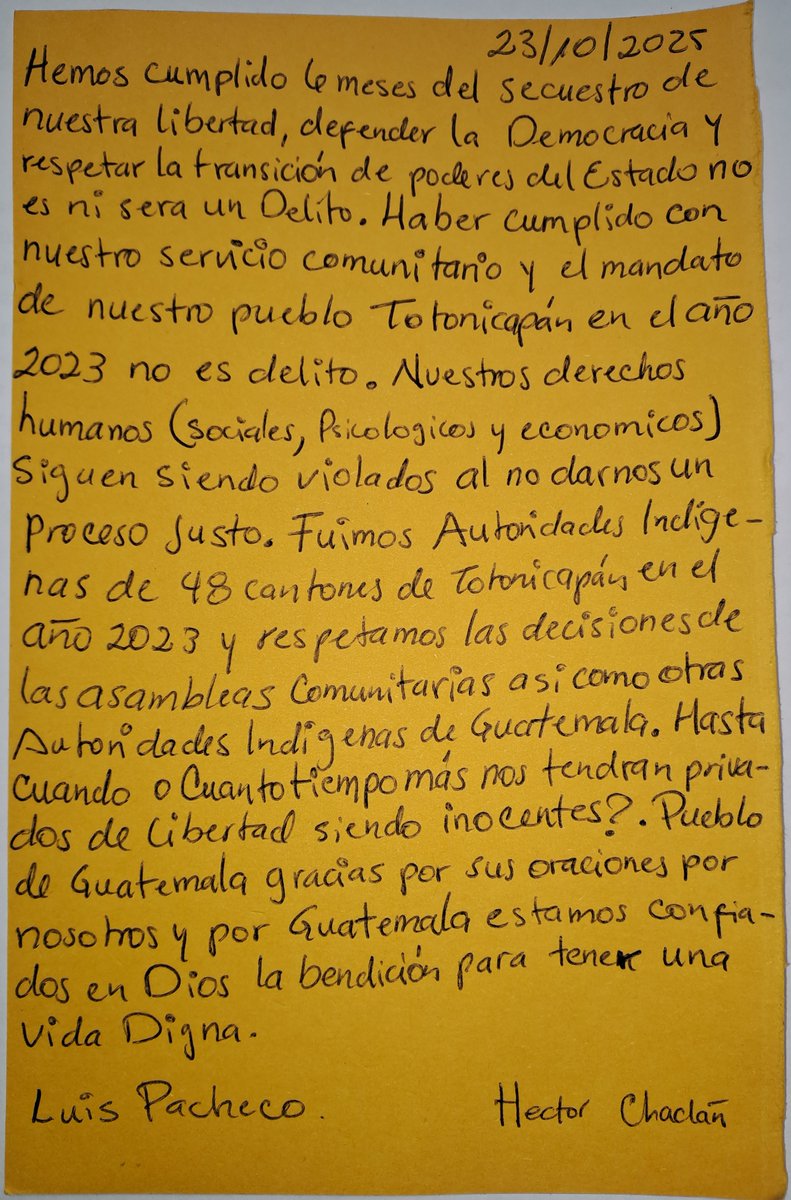 23/10/2025
Hemos cumplido 6 meses del secuestro de
nuestra libertad, defender la Democracia y
respetar la transición de poderes del Estado no
es ni sera un Delito. Haber cumplido con
nuestro servicio comunitario y el mandato
de nuestro pueblo Totonicapán en el año
2023 no es delito. Nuestros derechos
humanos (sociales, Psicologicos y economicos)
Siguen siendo violados al no darnos un
Proceso Justo. Fuimos Autoridades Indíge-
nas de 48 cantones de Totonicapán en el
año 2023 y respetamos las decisiones de
las asambleas Comunitarias asi como otras
Autoridades Indígenas de Guatemala. Hasta
cuando o Cuanto tiempo más nos tendran priva-
dos de Libertad siendo inocentes?. Pueblo
de Guatemala gracias por sus oraciones por
nosotros y por Guatemala estamos confia-
dos en Dios la bendición para tener una
vida Digna.
Luis Pacheco. Hector Chaclán